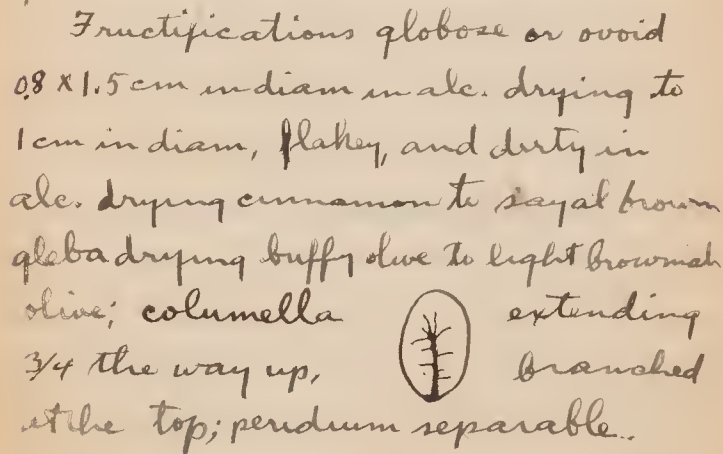 Fructifications globose or ovoid
0.8 x 1.5 cm in diam in alc. drying to
1 cm in diam, flakey, and dirty in
alc. drying cinnamon to sayal brown
gleba drying buffy olive to light brownish
olive; columella extending
3/4 the way up, branched
at the top; peridium separable.